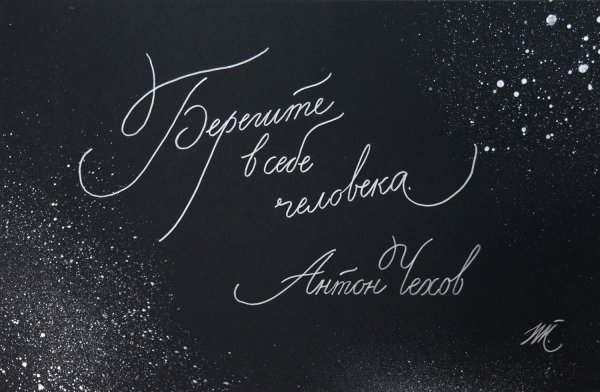 Берегите
в себе
человека.
Антон Чехов